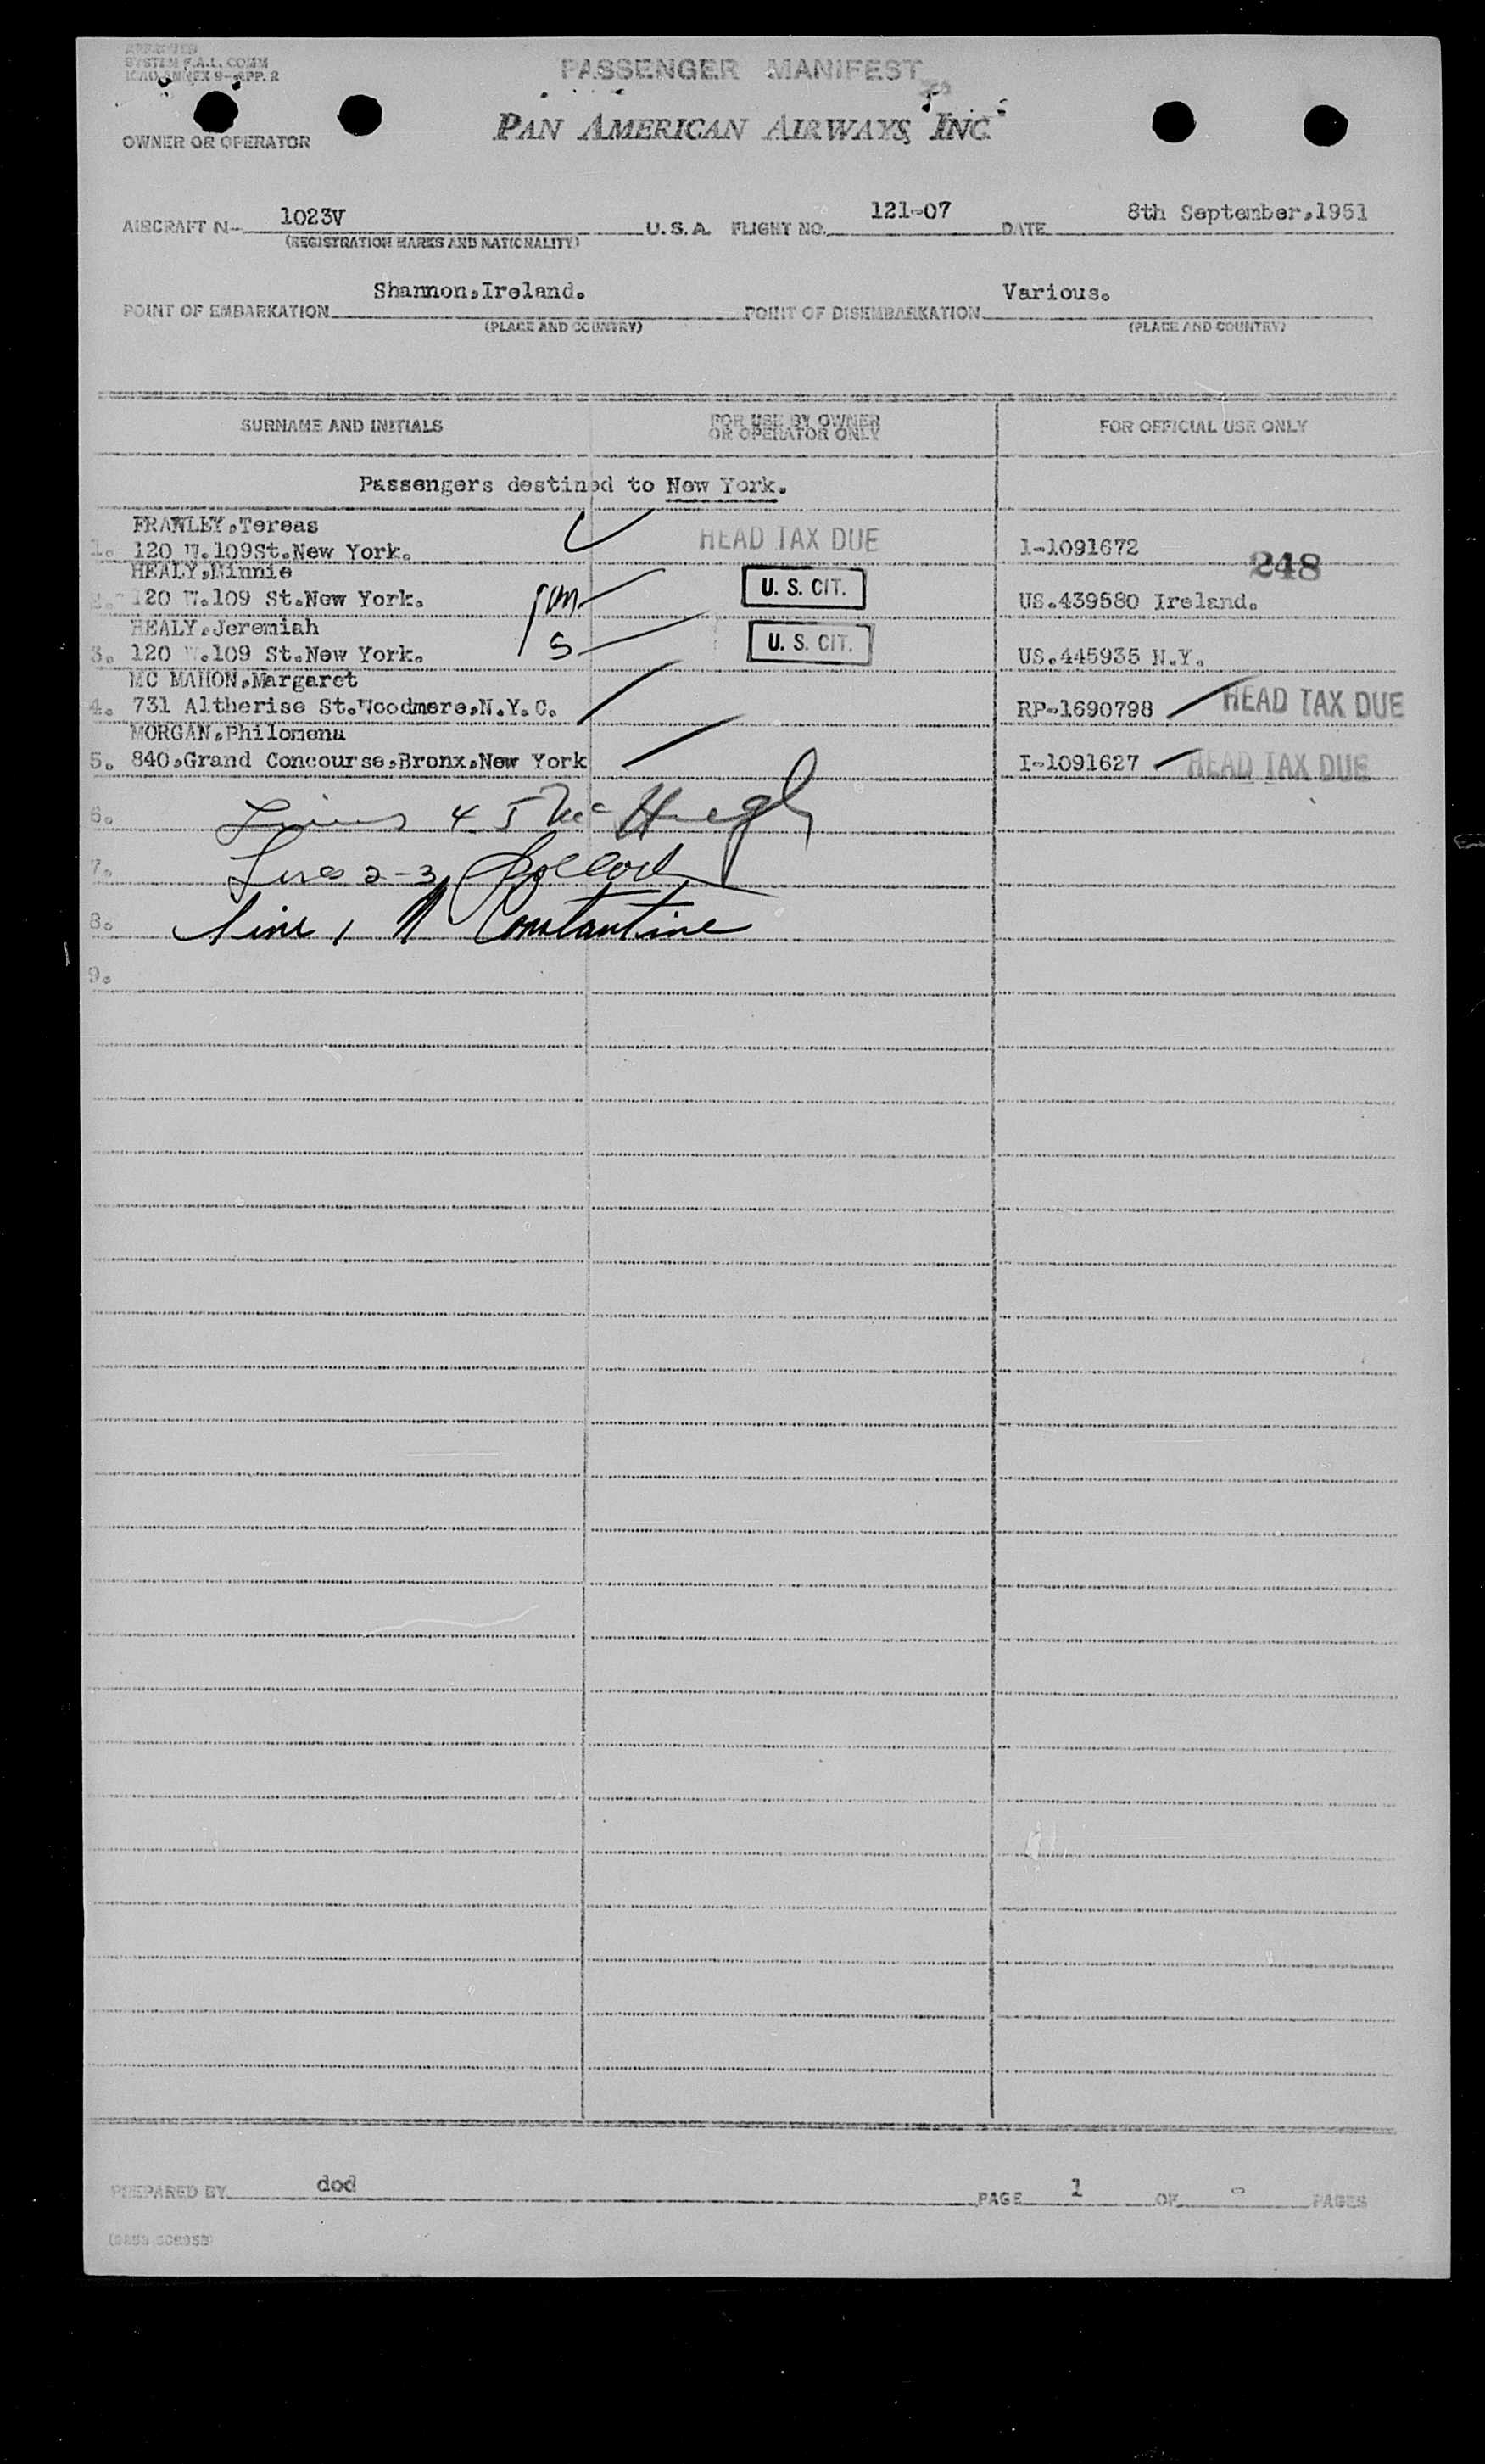 APPROVED
SYSTEM F.A.L. COMM
ICAO ANNEX 9-APP. 2
PASSENGER MANIFEST
PAN AMERICAN AIRWAYS, INC.
OWNER OR OPERATOR
AIRCRAFT N- 1023V U.S.A. FLIGHT NO. 121-07 DATE 8th September,1951
(REGISTRATION MARKS AND NATIONALITY)
POINT OF EMBARKATION Shannon,Ireland. POINT OF DISEMBARKATION Various.
(PLACE AND COUNTRY) (PLACE AND COUNTRY)
SURNAME AND INITIALS FOR USE BY OWNER OR OPERATOR ONLY FOR OFFICIAL USE ONLY
Passengers destined to New York.
FRAWLEY,Tereas
1. 120 W.109St.New York. HEAD TAX DUE 1-1091672 248
HEALY,Minnie
2. 120 W.109 St.New York. U. S. CIT. US.439580 Ireland.
HEALY,Jeremiah
3. 120 W.109 St.New York. S U. S. CIT. US.445935 N.Y.
MC MAHON,Margaret
4. 731 Altherise St.Woodmere,N.Y.C. RP-1690798 HEAD TAX DUE
MORGAN,Philomena
5. 840,Grand Concourse,Bronx,New York I-1091627 HEAD TAX DUE
6. Lines 4 5 McHugh
7. Lines 2-3
8. line 1 N Constantine
9.
PREPARED BY dod PAGE 1 OF PAGES